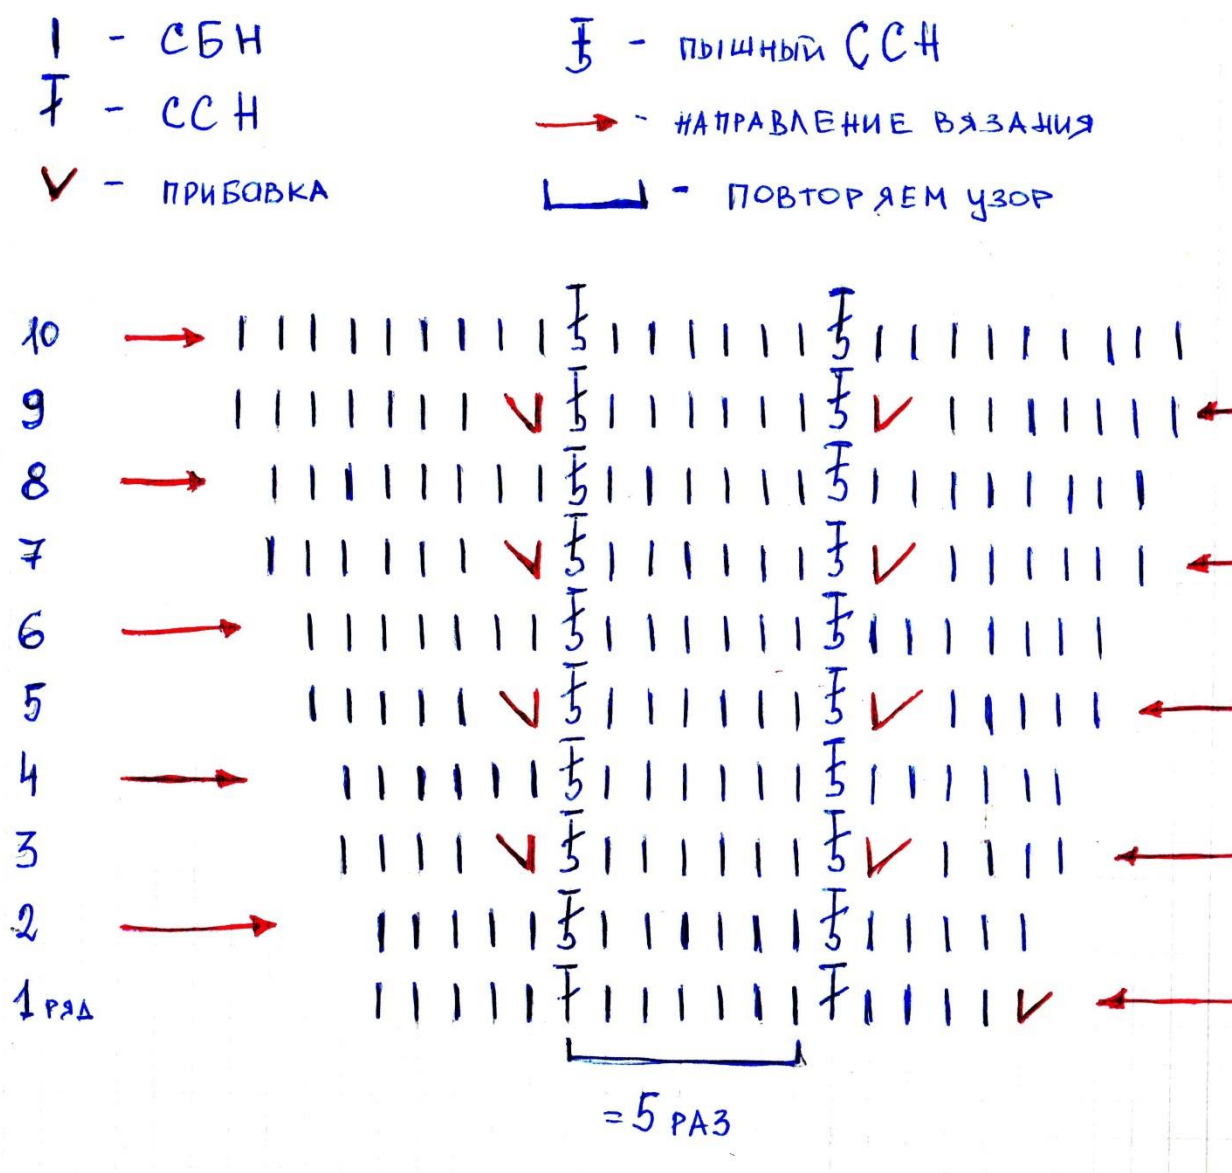 - СБН
- ССН
- ПРИБАВКА
- ПЫШНЫЙ ССН
- НАПРАВЛЕНИЕ ВЯЗАНИЯ
- ПОВТОРЯЕМ УЗОР
10
9
8
7
6
5
4
3
2
1 РЯД
= 5 РАЗ